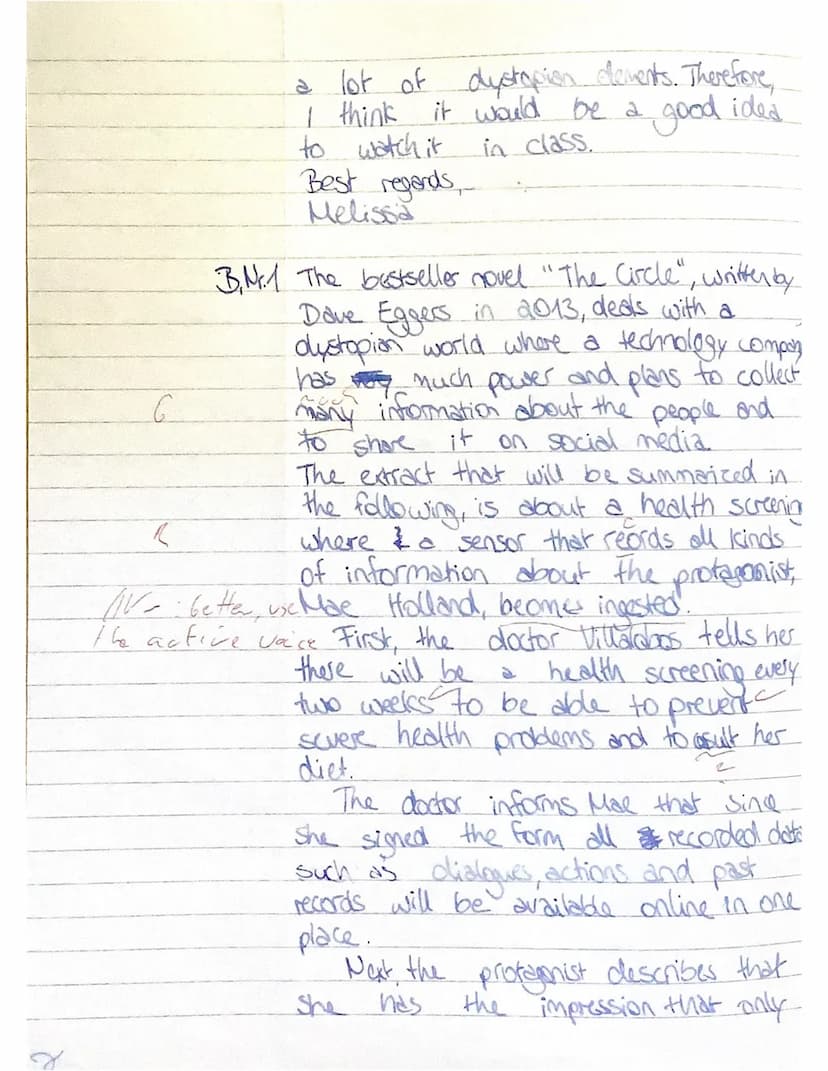 a lot of dystopian elements. Therefore,
I think it would be a good idea
to watch it in class.
Best regards,
Melissa
B,Nr.1 The bestseller novel "The Circle", written by
Dave Eggers in 2013, deals with a
dystopian world where a technology company
has much power and plans to collect
much
G many information about the people and
to share it on social media.
The extract that will be summarized in
the following, is about a health screening
R where a sensor that reords all kinds
c
of information about the protagonist,
: better, use Mae Holland, becomes ingested.
the active voice First, the doctor Villalobos tells her
there will be a health screening every
two weeks to be able to prevent
severe health problems and to her
diet.
The doctor informs Mae that since
she signed the form all recorded data
such as dialogues, actions and past
records will be available online in one
place.
Next, the protagonist describes that
she has the impression that only